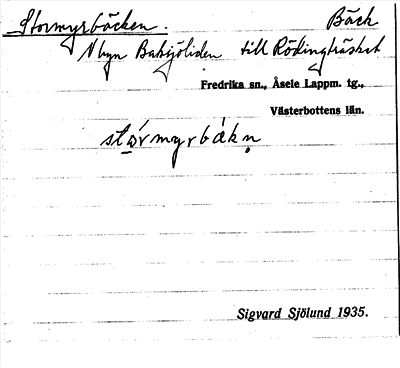 Stormyrbäcken. Bäck
V byn Baksjöliden till Rödingträsket
Fredrika sn., Åsele Lappm. tg.,
Västerbottens län.
stórmyrbäkṇ
Sigvard Sjölund 1935.